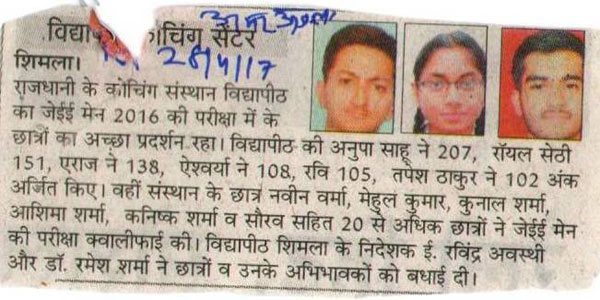 अमर उजाला
विद्या कोचिंग सेंटर
28/4/17
शिमला।
राजधानी के कोचिंग संस्थान विद्यापीठ
का जेईई मेन 2016 की परीक्षा में के
छात्रों का अच्छा प्रदर्शन रहा। विद्यापीठ की अनुपा साहू ने 207, रॉयल सेठी
151, एराज ने 138, ऐश्वर्या ने 108, रवि 105, तपेश ठाकुर ने 102 अंक
अर्जित किए। वहीं संस्थान के छात्र नवीन वर्मा, मेहुल कुमार, कुनाल शर्मा,
आशिमा शर्मा, कनिष्क शर्मा व सौरव सहित 20 से अधिक छात्रों ने जेईई मेन
की परीक्षा क्वालीफाई की। विद्यापीठ शिमला के निदेशक ई. रविंद्र अवस्थी
और डॉ. रमेश शर्मा ने छात्रों व उनके अभिभावकों को बधाई दी।